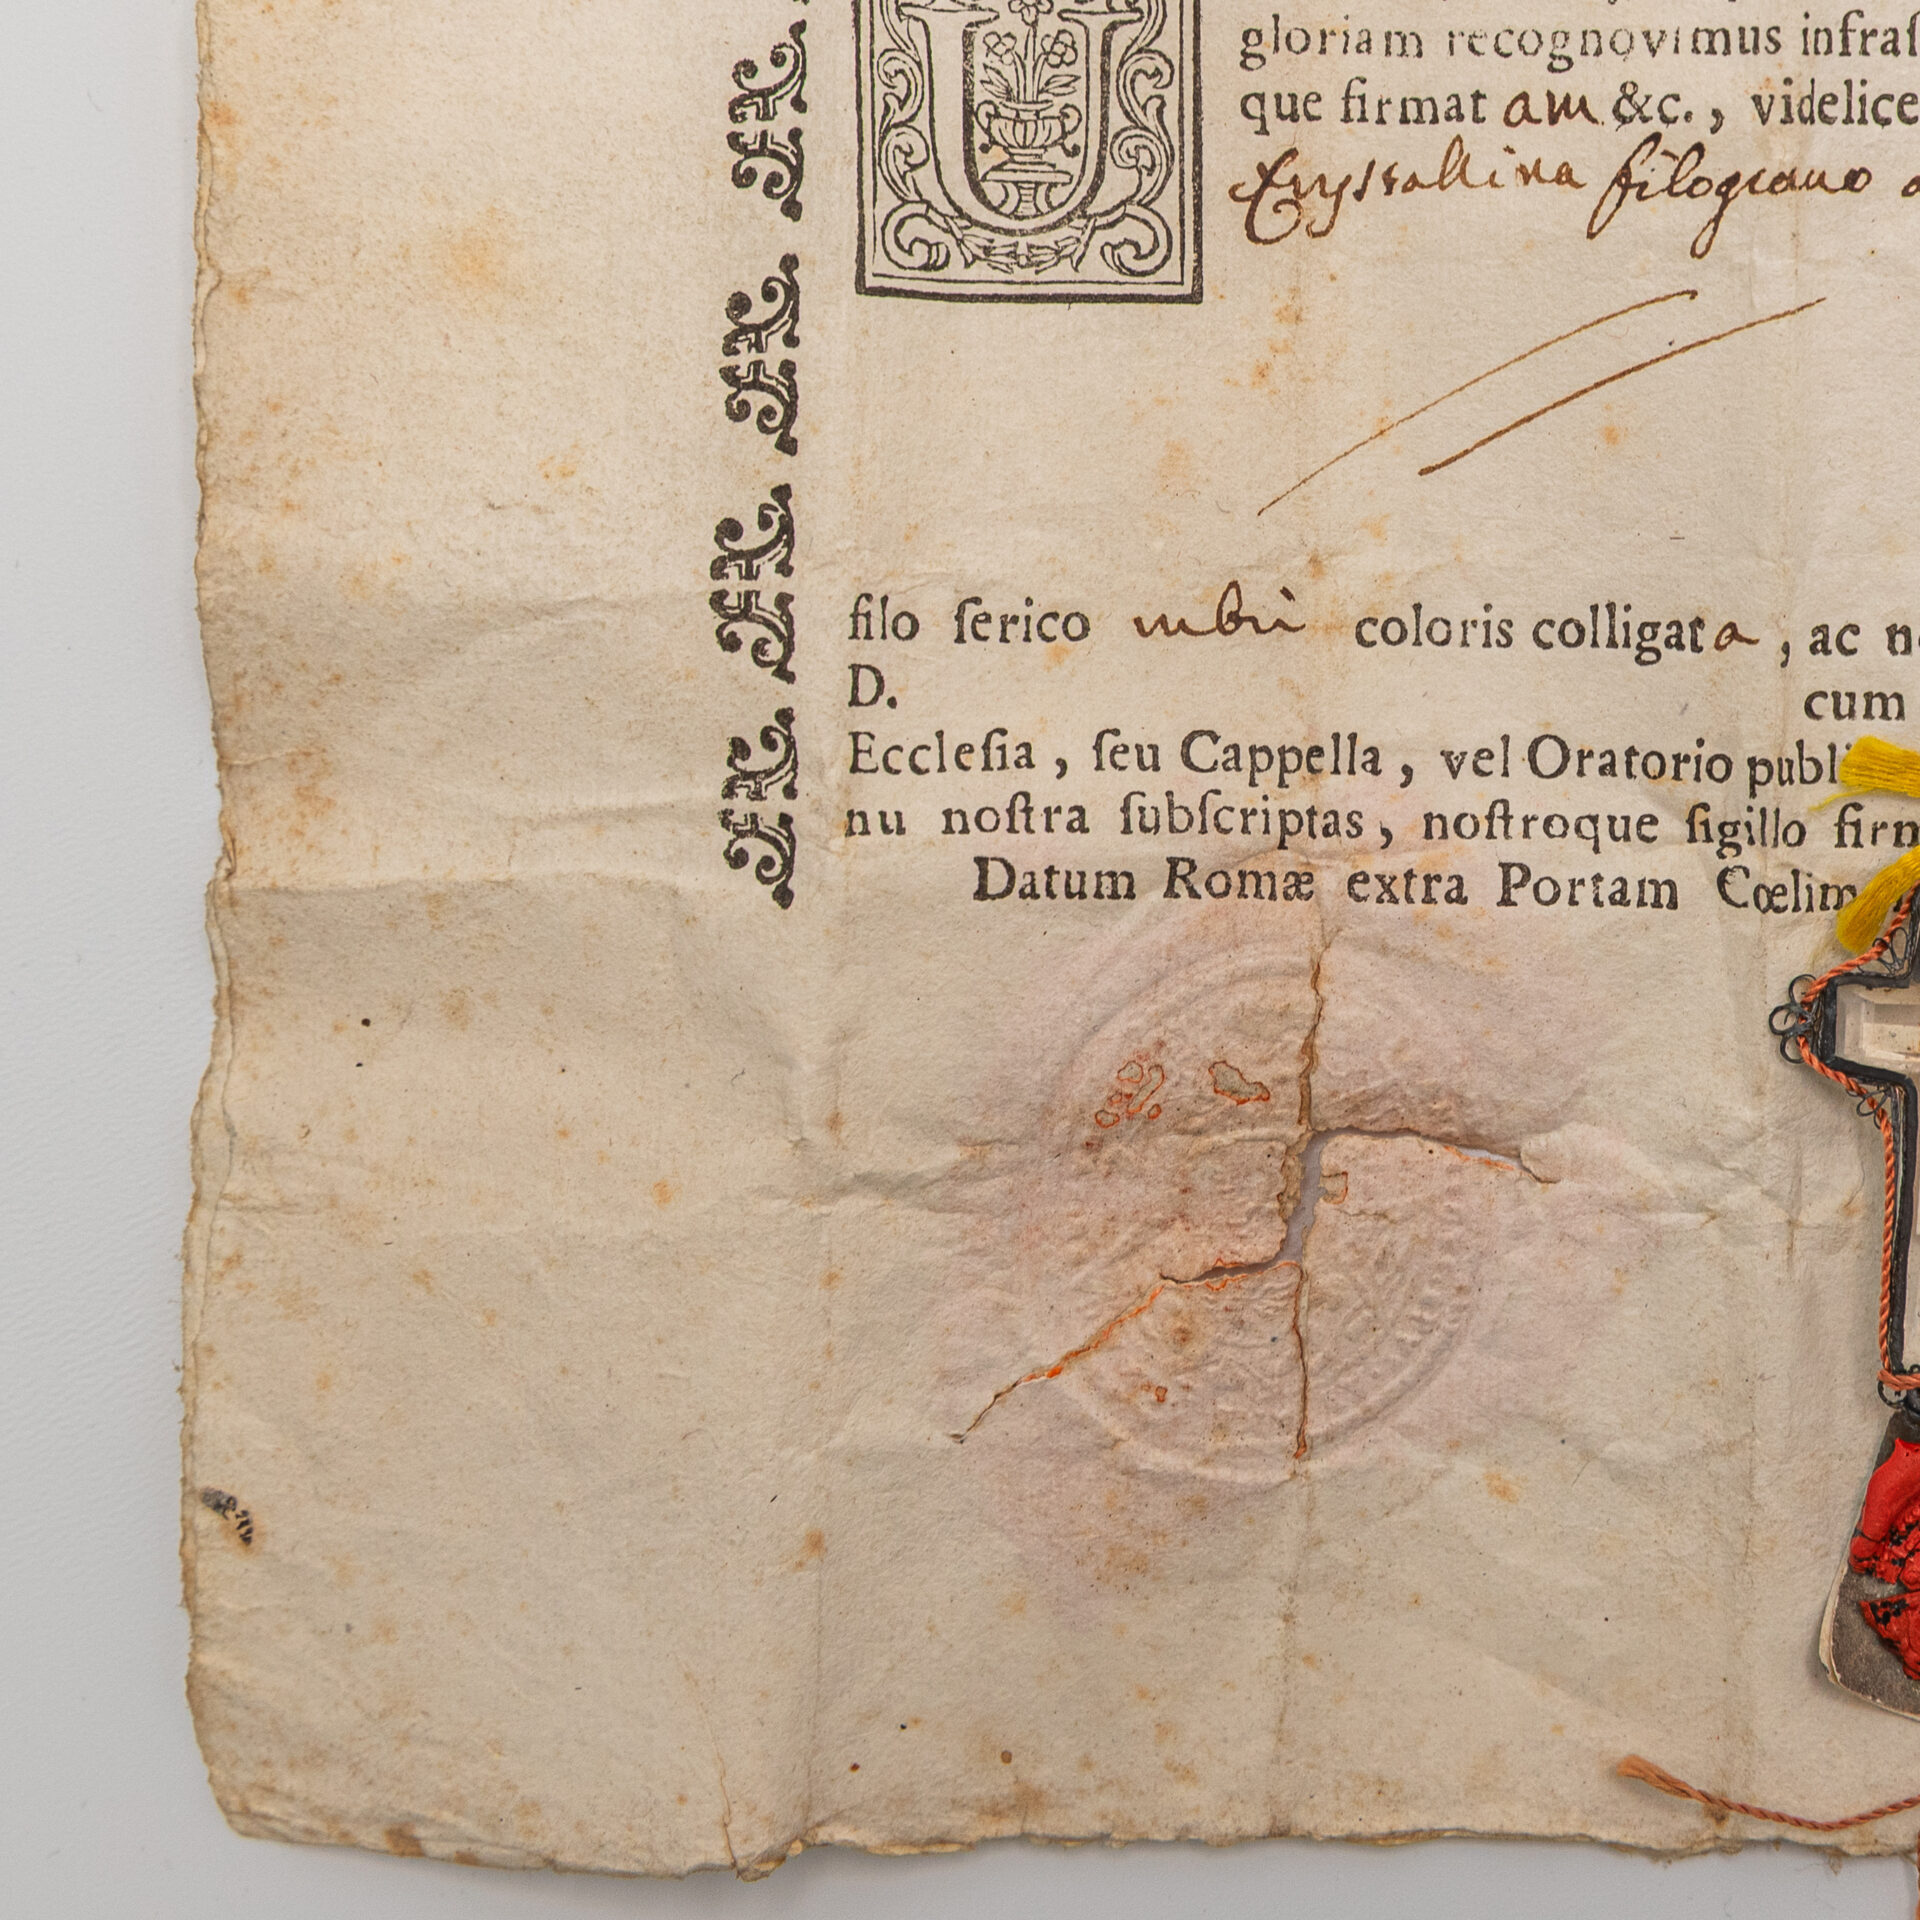 U
gloriam recognovimus infraſ
que firmat am &c., videlice
Cryſtallina filograno
filo ſerico rubri coloris colligata , ac n
D. cum
Eccleſia , ſeu Cappella , vel Oratorio publi
nu noſtra ſubſcriptas , noſtroque ſigillo firm
Datum Romæ extra Portam Cœlim